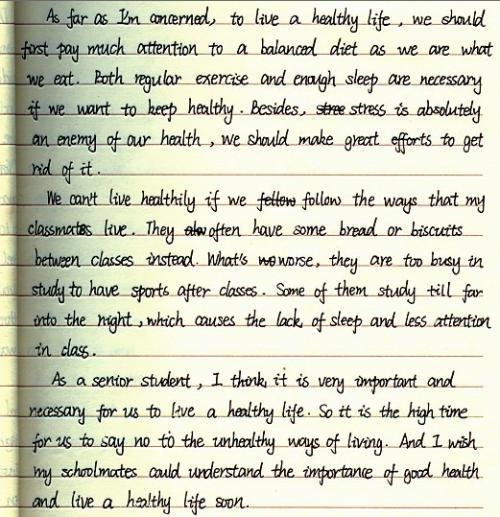 As far as I'm concerned, to live a healthy life, we should
first pay much attention to a balanced diet as we are what
we eat. Both regular exercise and enough sleep are necessary
if we want to keep healthy. Besides, stree stress is absolutely
an enemy of our health, we should make great efforts to get
rid of it.
We can't live healthily if we fellow follow the ways that my
classmates live. They often have some bread or biscuits
between classes instead. What's wo worse, they are too busy in
study to have sports after classes. Some of them study till far
into the night, which causes the lack of sleep and less attention
in class.
As a senior student, I think it is very important and
necessary for us to live a healthy life. So it is the high time
for us to say no to the unhealthy ways of living. And I wish
my schoolmates could understand the importance of good health
and live a healthy life soon.